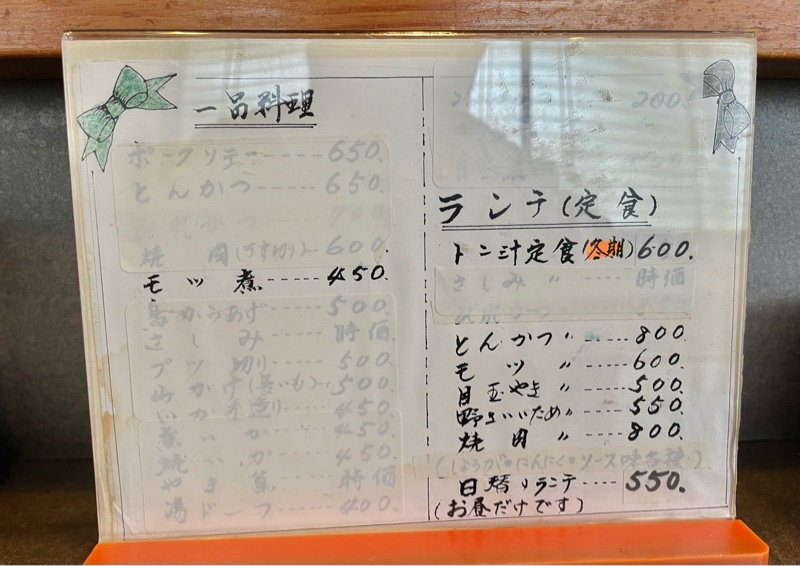 一品料理
ポークソテー-----650.
とんかつ-----650.
焼 肉(うす切り)--600.
モツ 煮-----450.
鳥からあげ-----500
さ し み-----時価
ブツ切り-----500.
山かけ(長いも)--500.
いか 手造り----450
煮 い か-----450.
焼 い か-----450.
時価
湯ドーフ-----400.
200.
ランチ(定食)
トン汁定食(冬期)600.
さしみ 〃-----時価
とんかつ 〃-----800.
モ ツ 〃-----600.
目玉やき 〃-----500.
野さいいため〃----550.
焼 肉 〃----800.
(しょうが・にんにく・ソース味各種)
日替りランチ----550.
(お昼だけです)